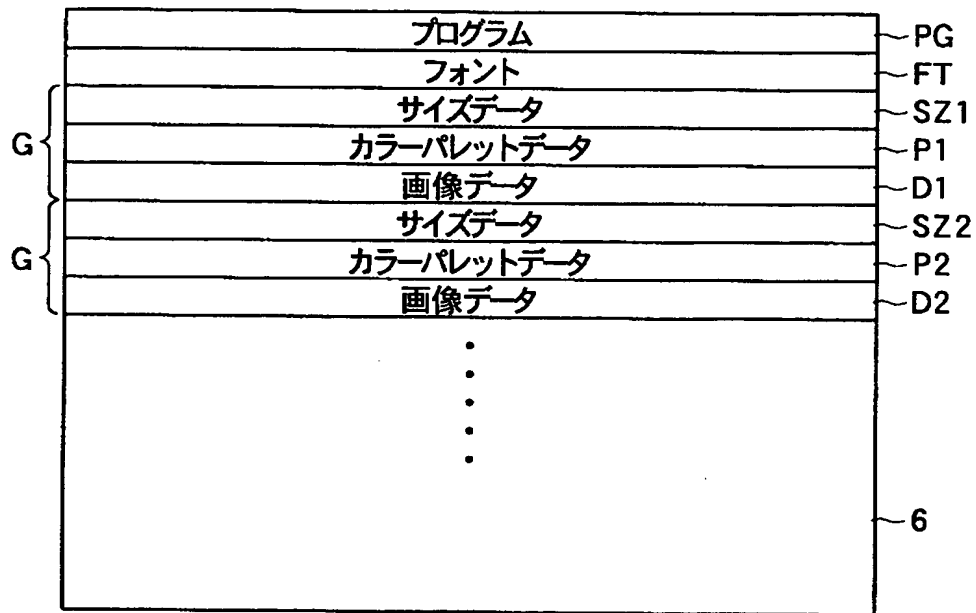 プログラム PG
フォント FT
サイズデータ SZ1
G カラーパレットデータ P1
画像データ D1
サイズデータ SZ2
G カラーパレットデータ P2
画像データ D2
6